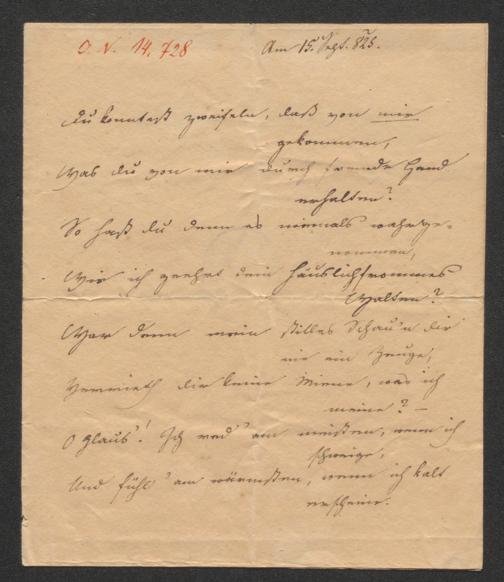 O. N. 14.728
Am 15. Sept. 825.
Du konntest zweifeln, daß von mir
gekommen,
Was du von mir durch fremde Hand
erhalten?
So hast du denn es niemals wahrge-
nommen,
Wie ich geehrt dein häuslichfrommes
Walten?
War denn mein stilles Schau'n dir
nie ein Zeuge,
Verrieth dir keine Miene, was ich
meine? –
O glaub'! Ich red' am meisten, wenn ich
schweige,
Und fühl' am wärmsten, wenn ich kalt
erscheine.